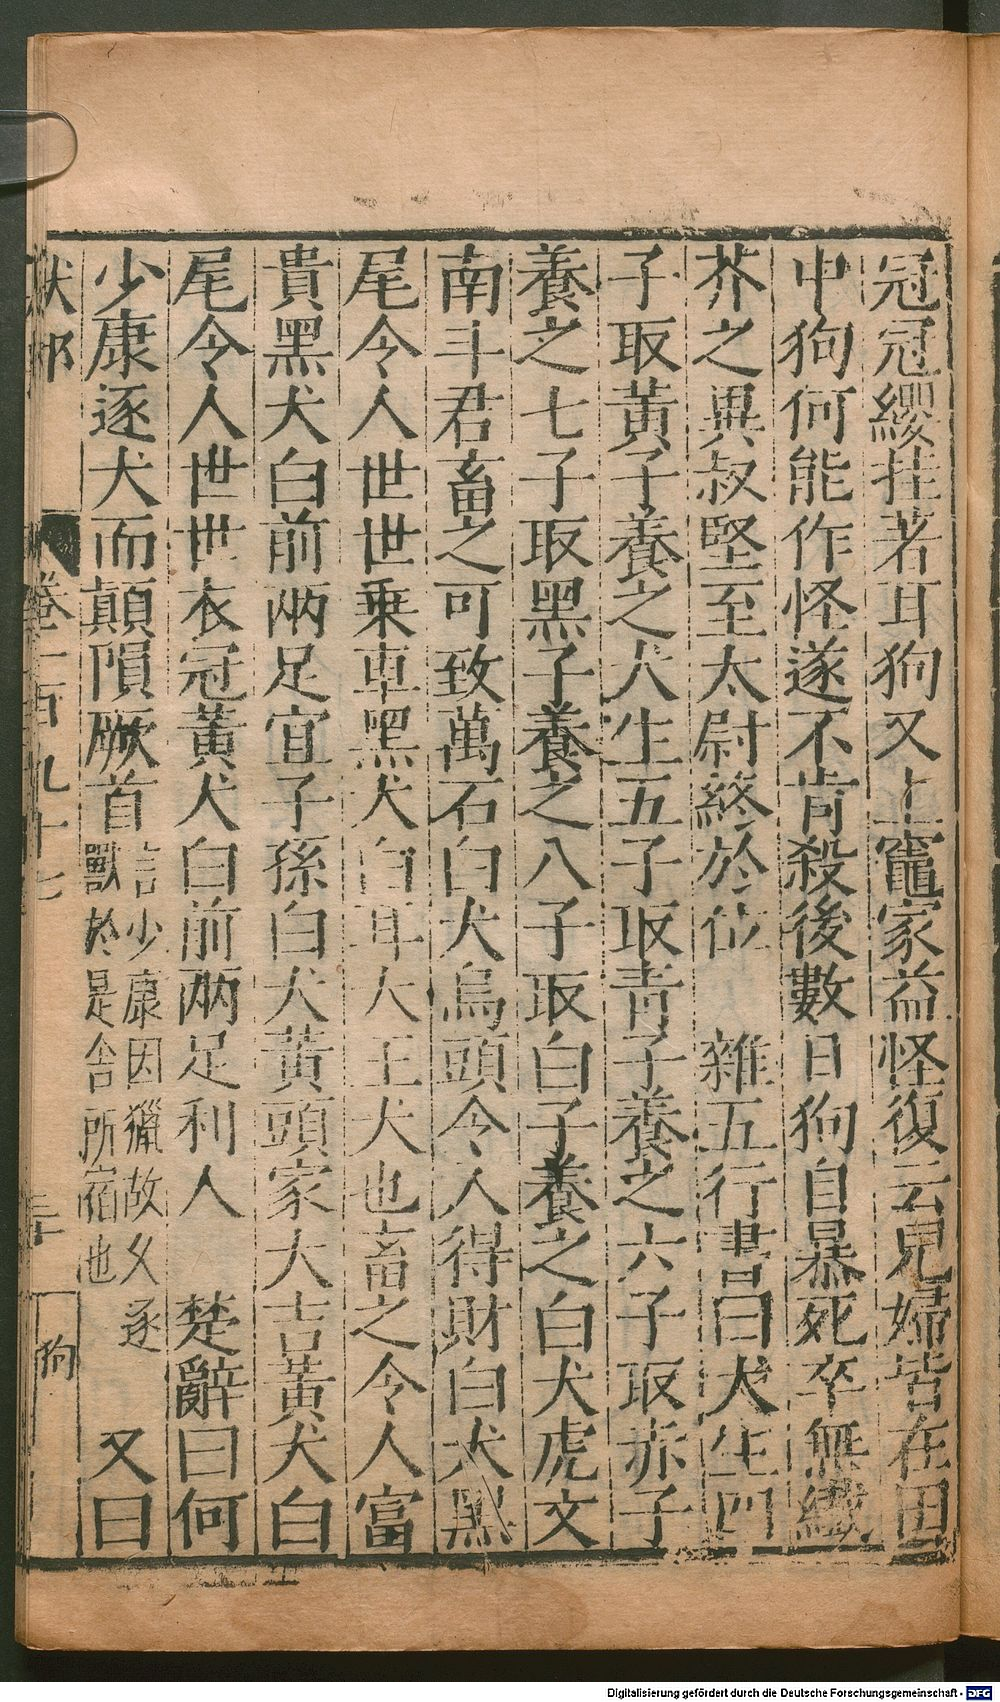 冠冠纓挂著耳狗又上竈家益怪復云兒婦皆在田
中狗何能作怪遂不肯殺後數日狗自暴死卒無纖
芥之異叔堅至太尉終於位　雜五行書曰犬生四
子取黃子養之犬生五子取青子養之六子取赤子
養之七子取黑子養之八子取白子養之白犬虎文
南斗君畜之可致萬石白犬烏頭令人得財白犬黑
尾令人世世乗車黑犬白耳犬王犬也畜之令人富
貴黑犬白前兩足宜子孫白犬黃頭家大吉黃犬白
尾令人世世衣冠黃犬白前兩足利人　楚辭曰何
少康逐犬而顛隕厥首言少康因獵故犬逐獸於是舍所宿也　又曰
獸部　卷一百九十七　三十　狗
Digitalisierung gefördert durch die Deutsche Forschungsgemeinschaft - DFG